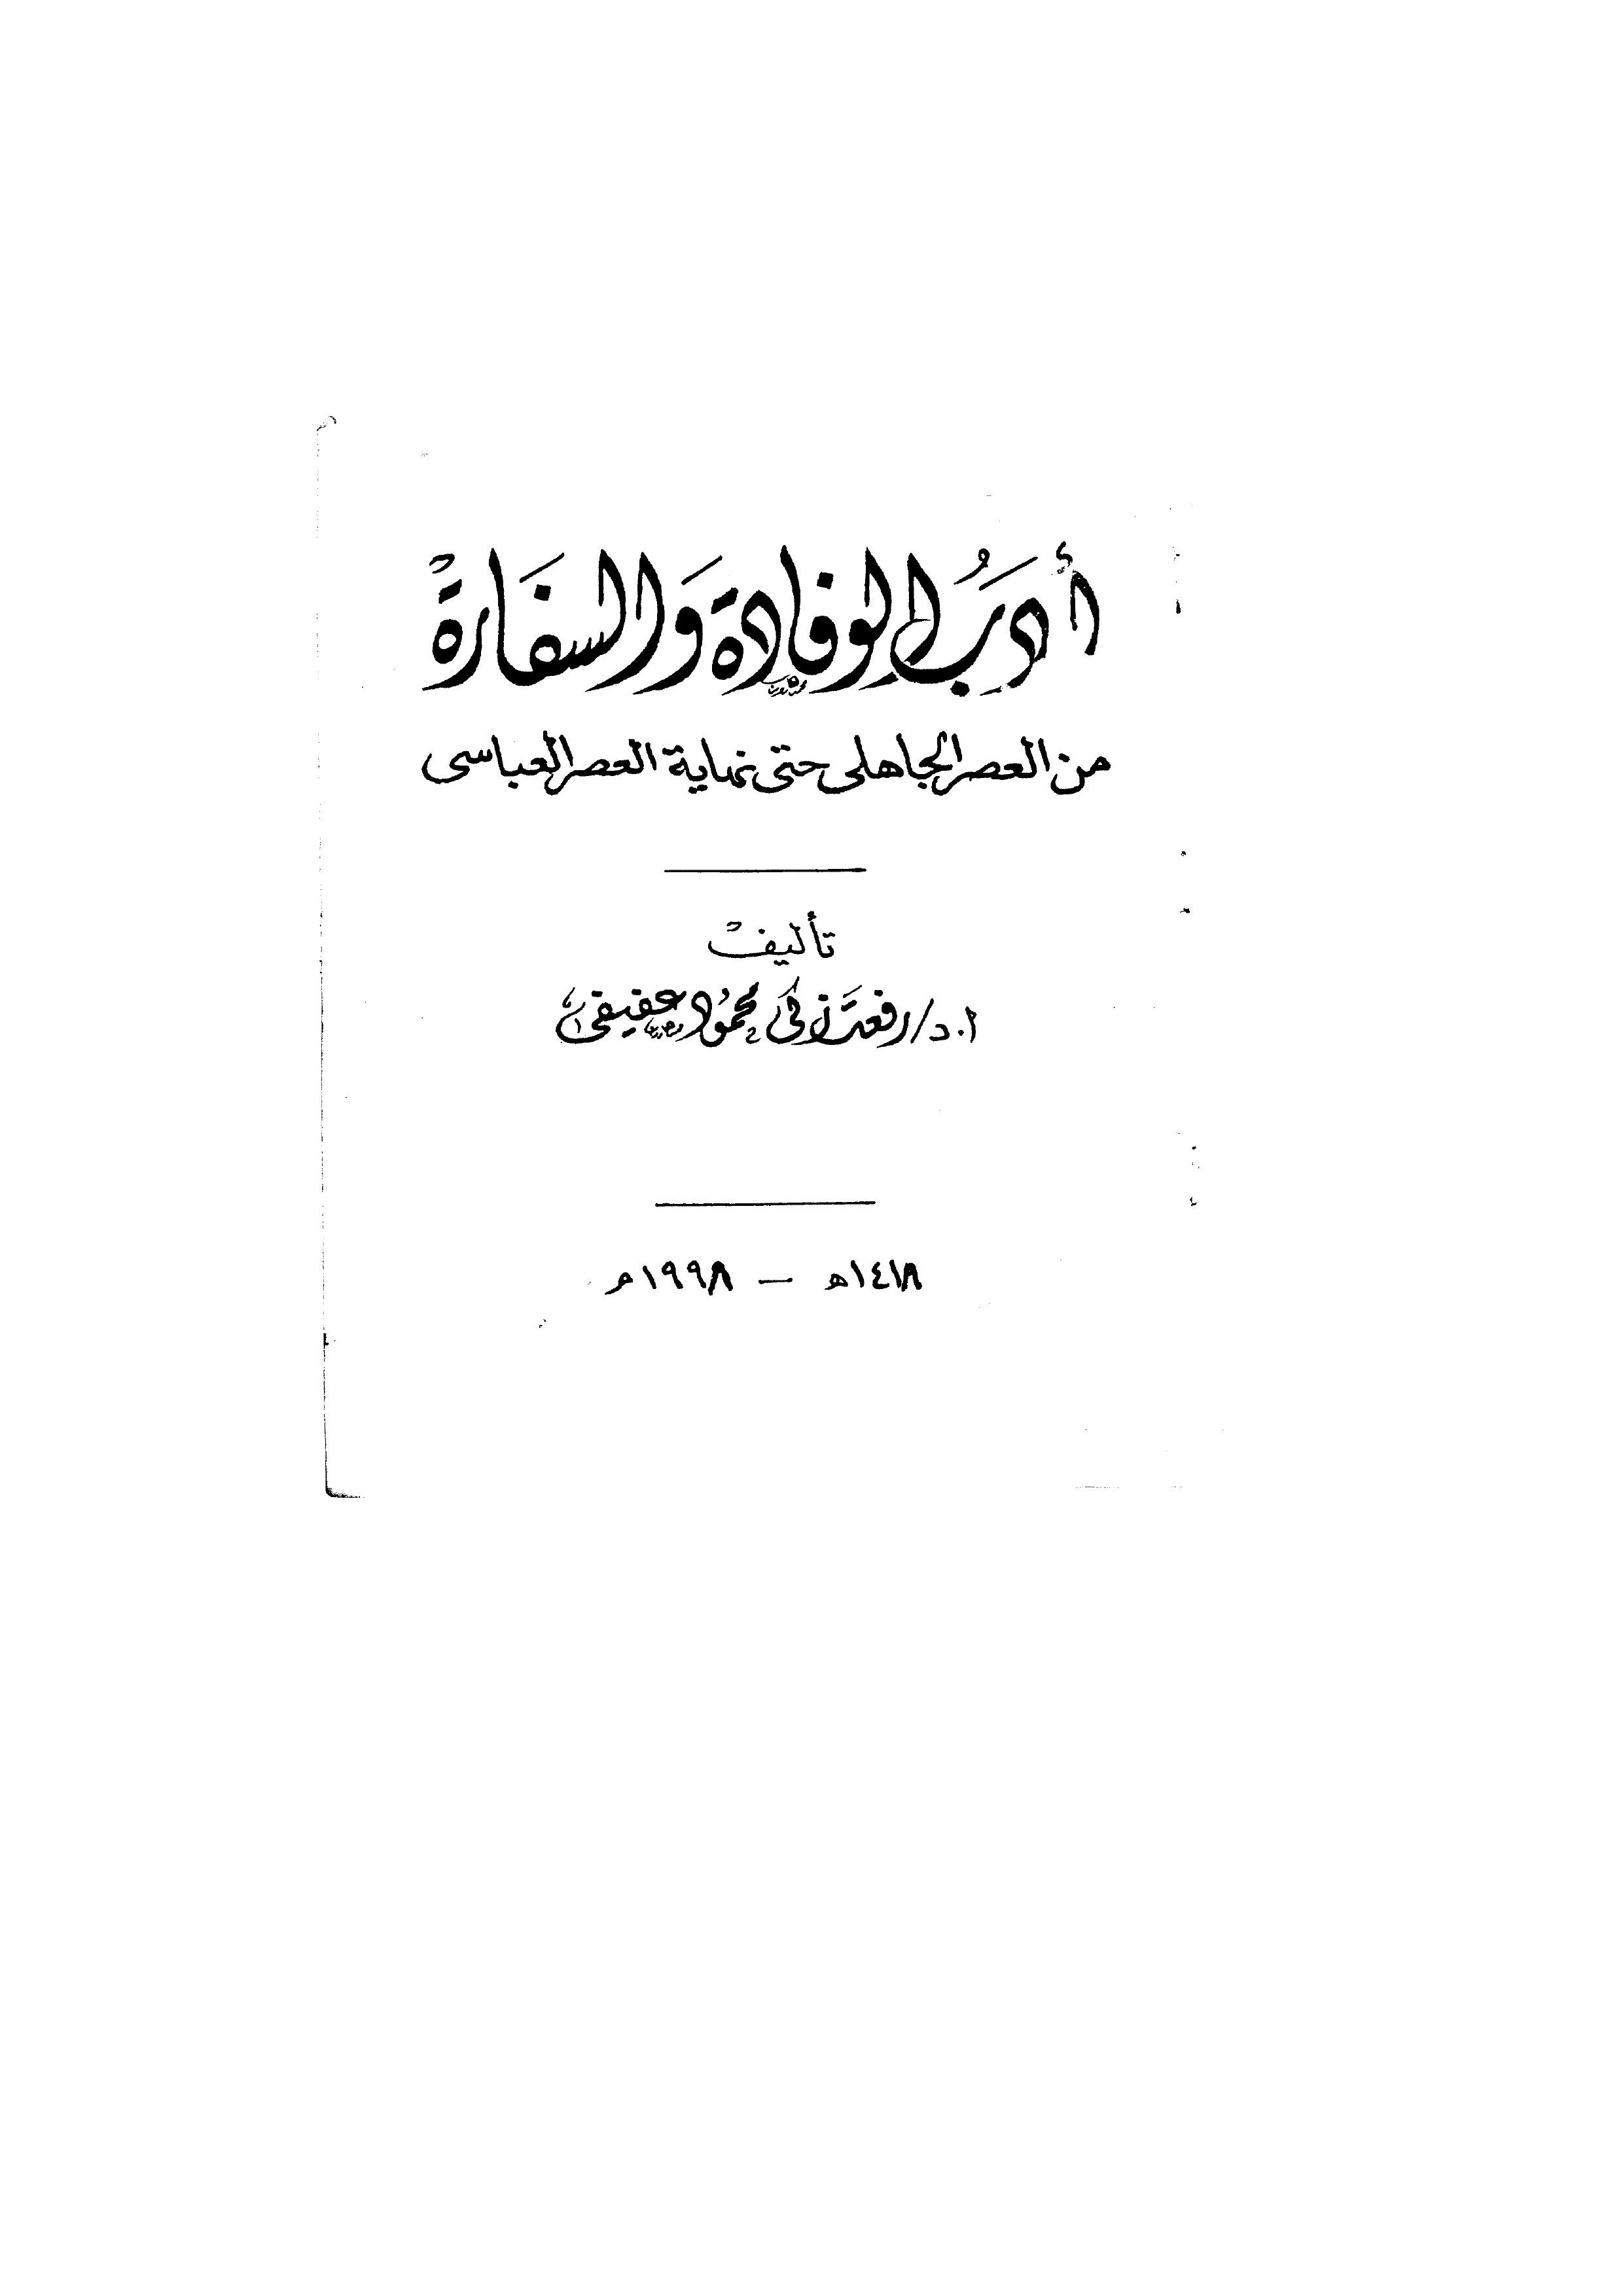 أدَبُ الوفادة وَالسفَارة
من العصر الجاهلى حتى نهاية العصر العباسى
تأليف
ا.د/ رفعت زكى محمود عفيفى
١٤١٨هـ – ١٩٩٨م